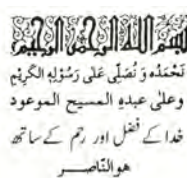 بسم اللہ الرحمن الرحیم
نَحْمَدُهٗ وَ نُصَلِّی عَلٰی رَسُوْلِهِ الْكَرِيْمِ
وعلٰی عبدہِ المسیح الموعود
خدا کے فضل اور رحم کے ساتھ
ھوالنّاصـــر